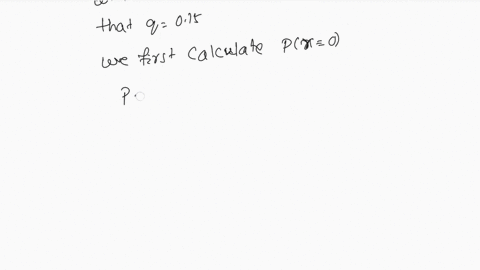 that q = 0.75
we first calculate P(x=0)
P